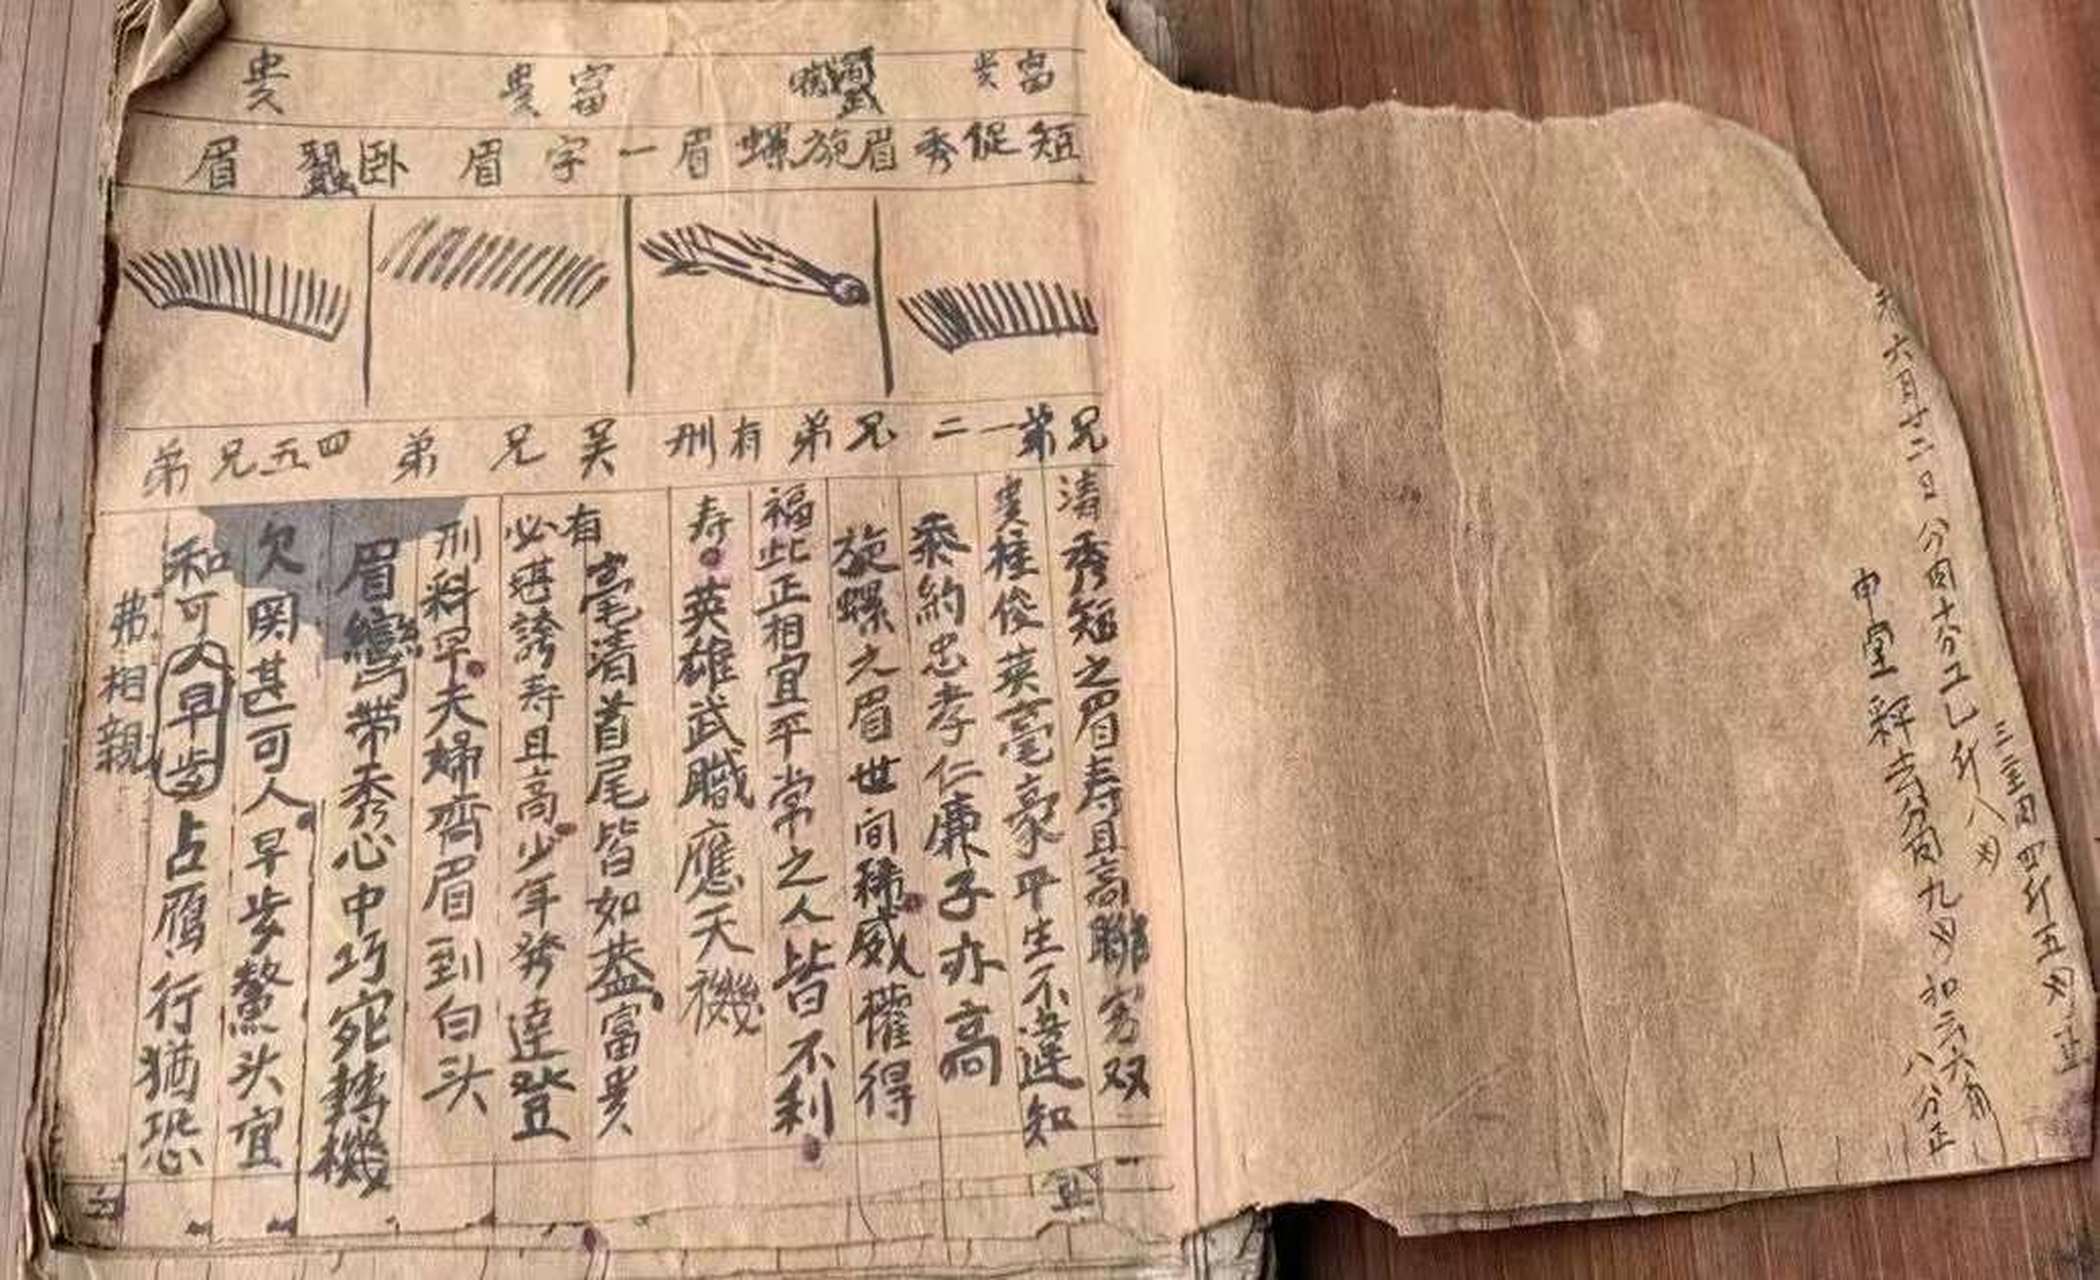 富貴
武職
富貴
貴
短促秀眉
旋螺眉
一字眉
卧蠶眉
兄弟一二
兄弟有刑
吴兄弟
四五兄弟
清秀短之眉寿且高聯芳双
貴桂俊英毫豪平生不違知
黍約忠孝仁廉子亦高
旋螺之眉世间稀威權得
福此正相宜平常之人皆不利
寿英雄武職應天機
有毫清首尾皆如蓋富貴
必堪誇寿且高少年發達登
刑科早夫婦齊眉到白头
眉彎带秀心中巧宛轉機
欠関甚可人早步鰲头宜
和可人早步占鴈行猶恐
弗相親
六月廿二日
八分正